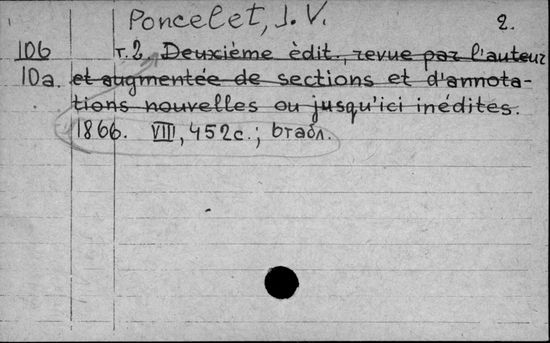 Poncelet, J. V. 2.
106 т.2. Deuxième èdit., revue par l'auteur
10a. et augmentée de sections et d'annota-
tions nouvelles ou jusqu'ici inédites.
1866. VIII, 452с.; 6табл.